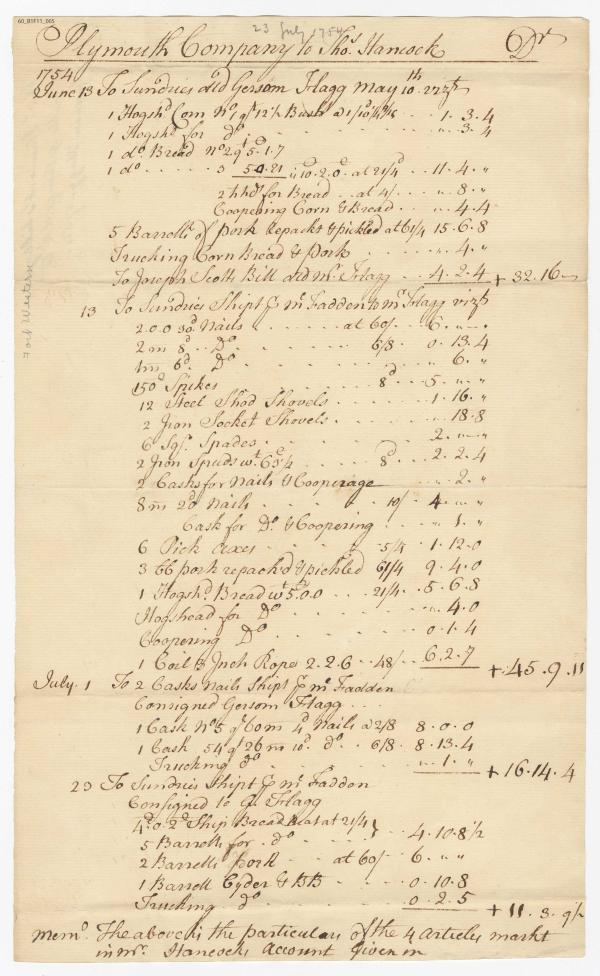 60_B1F15_005
23 July 1754
Plymouth Company to Thos. Hancock Dr
1754
June 13 To Sundries dld Gersom Flagg May 10th vizt
1 Hogshd Corn No 1 qt 12½ Bush a 1/10 1.3.4
1 Hogshd for do " 3.4
1 do. Bread No 2 qt 5.1.7
1 do 3 5.0.21 10.2.0 at 21/4 11.4."
2 hhds for Bread at 4/ " 8."
Coopering Corn & Bread " 4.4
5 Barrells of Pork repackt & pickled at 61/4 15.6.8
Trucking Corn Bread & Pork " 4."
To Joseph Scotts Bill dld Mr. Flagg 4.2.4 + 32.16
13 To Sundries Shipt p Mr Fadden to Mr Flagg vizt
2.0.0 30d Nails at 60/ 6."."
2m 8d Do 6/8 0.13.4
1m 6d. Do " 6."
150 Spikes 8d 5."."
12 Steel Shod Shovels 1.16."
2 Iron Socket Shovels " 18.8
6 Sqr. Spades 2."."
2 Iron Spuds wt. 63¼ 8d 2.2.4
2 Casks for Nails & Cooperage " 2."
8m 20d Nails 10/ 4."."
Cask for Do. & Coopering " 1."
6 Pick Axes 5/4 1.12.0
3 bb Pork repack'd & pickled 61/4 9.4.0
1 Hogshd. Bread wt 5.0.0 21/4 5.6.8
Hogshead for Do " 4.0
Coopering Do 0.1.4
1 Coil 3 Inch Rope 2.2.6 48/ 6.2.7 + 45.9.11
July 1 To 2 Casks Nails Shipt p Mr Fadden
Consigned Gersom Flagg
1 Cask No 5 qt 60m 4d Nails a 2/8 8.0.0
1 Cask 54 qt 26m 10d do 6/8 8.13.4
Trucking do " 1." + 16.14.4
23 To Sundries Shipt p Mr Fadden
Consigned to G. Flagg
4.0.2 Ship Bread at 21/4
5 Barrells for do 4.10.8½
2 Barrells Pork at 60/ 6.".
1 Barrell Cyder & BB 0.10.8
Trucking do 0.2.5 + 11.3.9½
Memo. The above is the particulars of the 4 Articles markt
in Mr. Hancocks Account given in
Fort Western